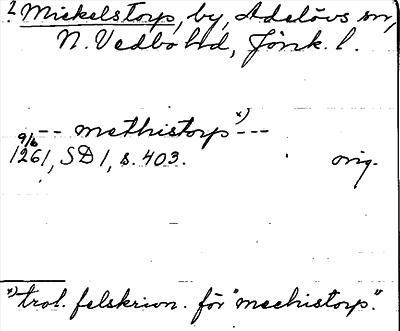 ? Mickelstorp, by, Adelövs sn,
N. Vedbo hd, Jönk. l.
-- methistorp x) ---
9/6
1261, SD 1, s. 403. orig.
x) trol. felskrivn. för "mechistorp".